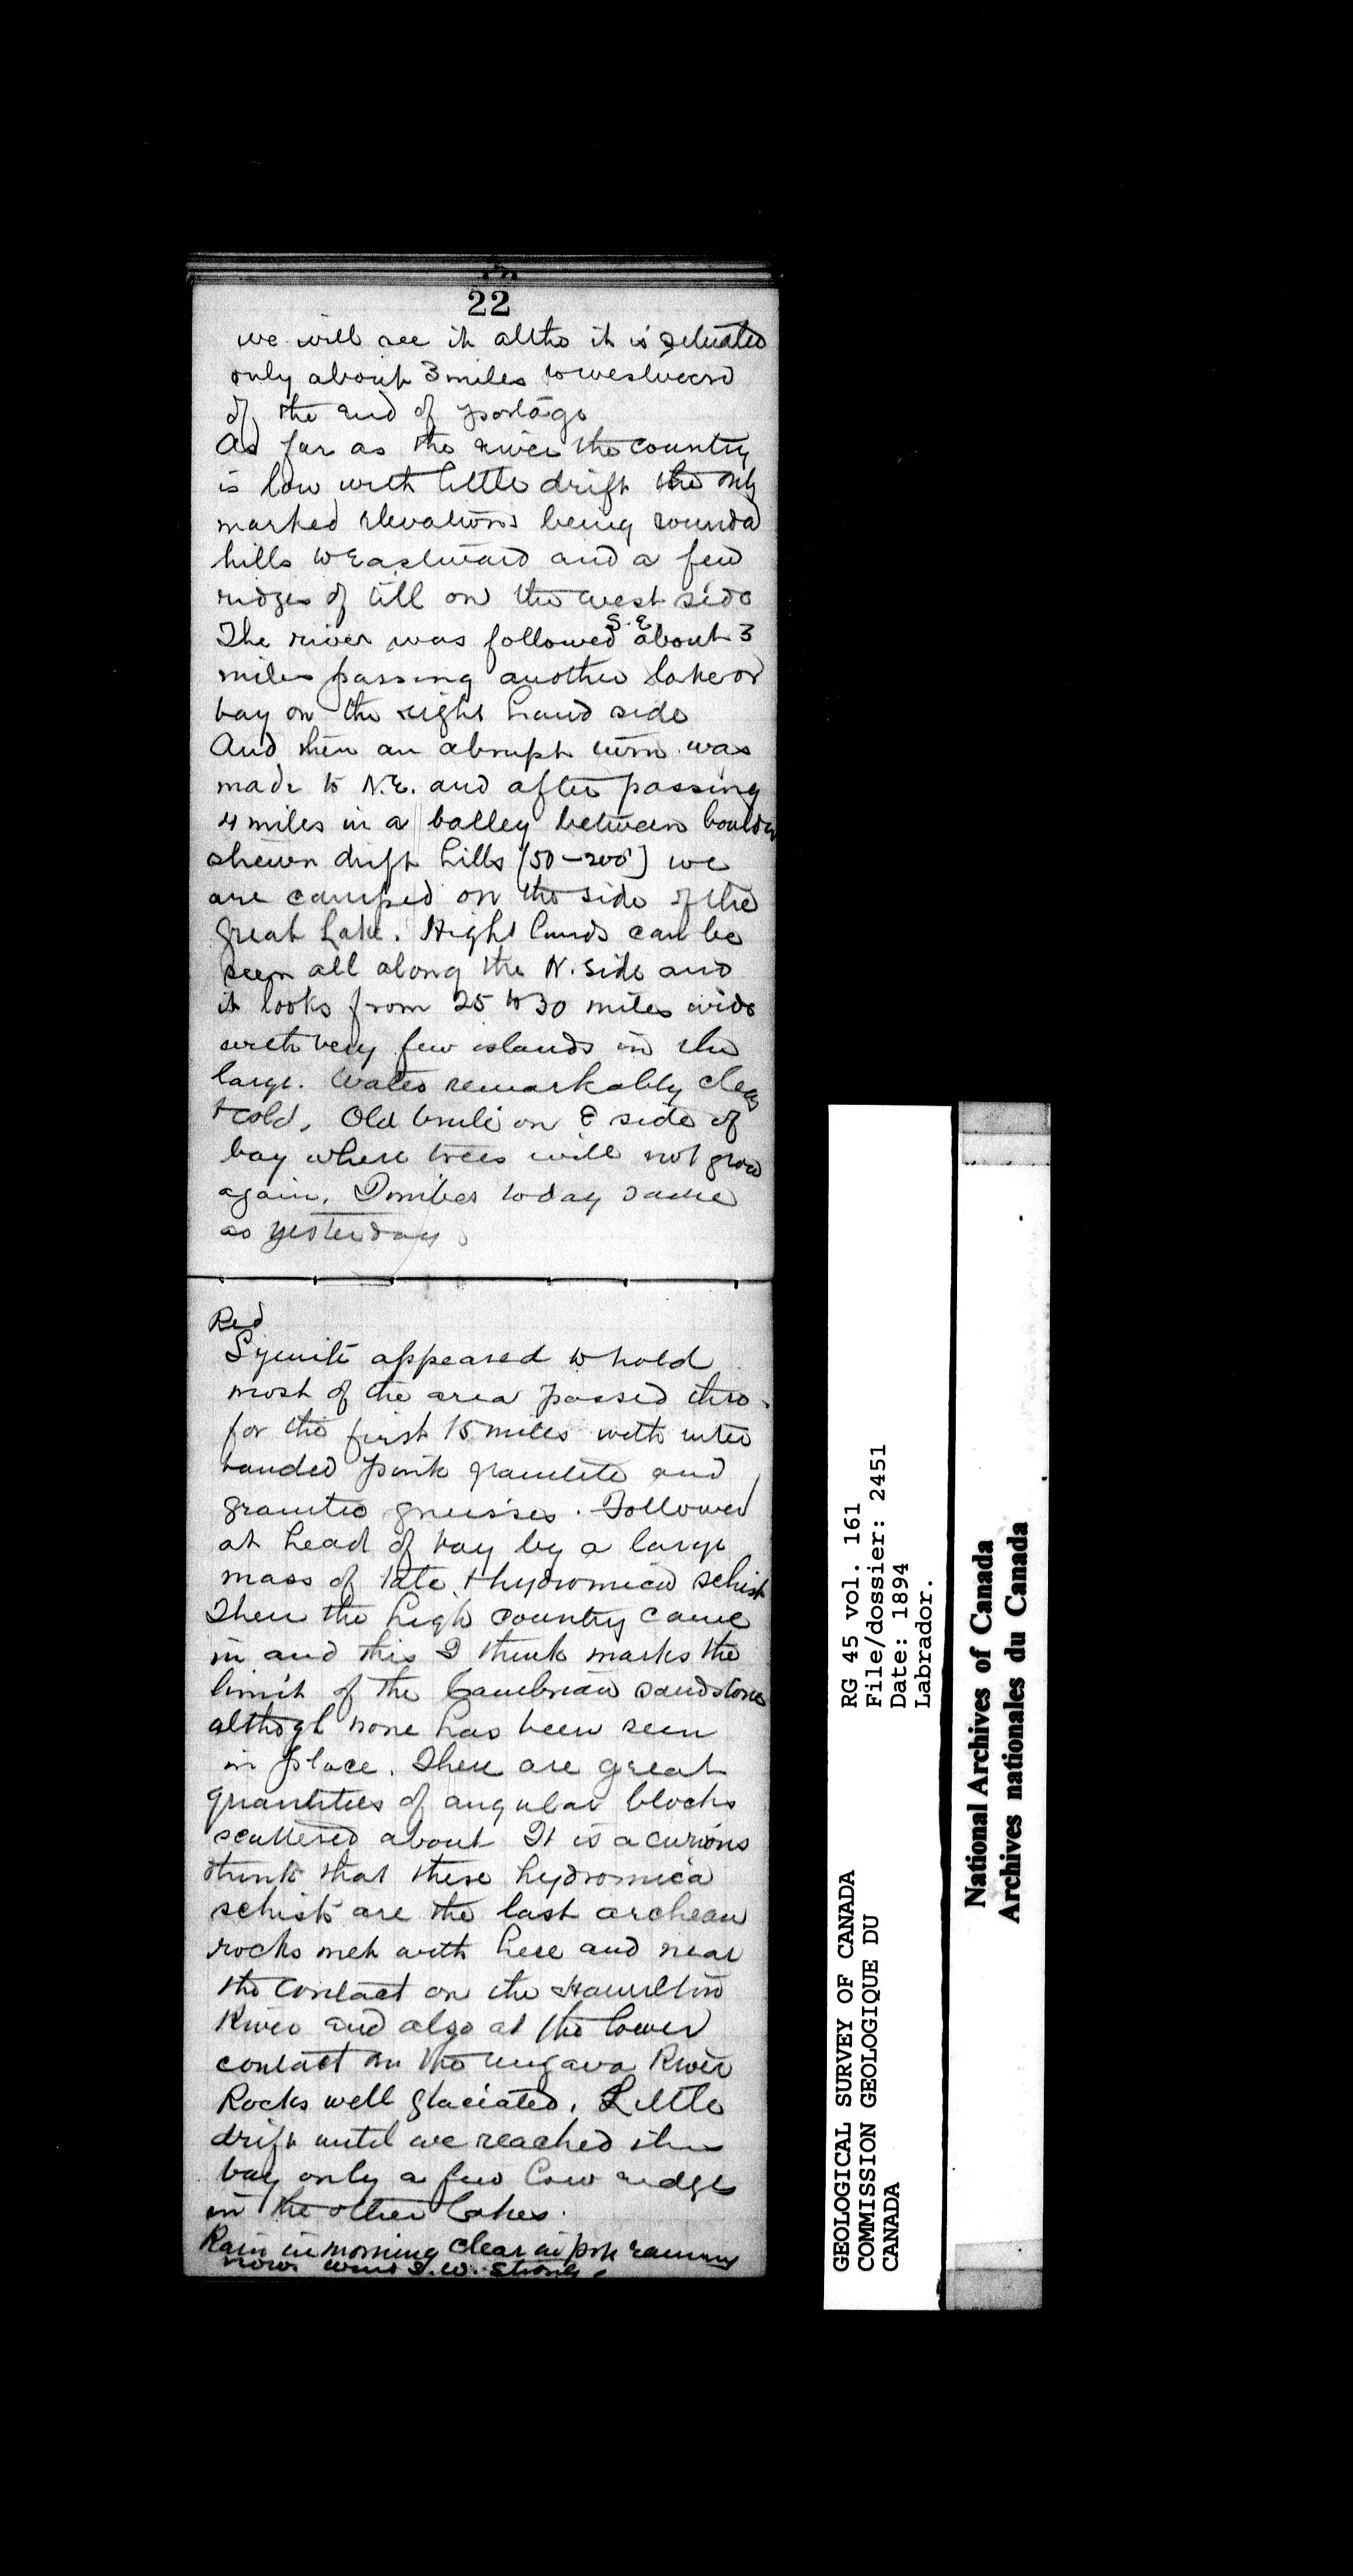 22
we will see it altho it is situated
only about 3 miles to westward
of the end of portage
As far as the river the country
is low with little drift the only
marked elevations being round
hills to Eastward and a few
ridges of till on the west side
The river was followed S.E. about 3
miles passing another lake or
bay on the right hand side
And then an abrupt turn was
made to N.E. and after passing
4 miles in a valley between boulder
strewn drift hills [50-200'] we
are camped on the side of the
Great Lake. Hight lands can be
seen all along the N. side and
it looks from 25 to 30 miles wide
with very few islands in the
large. Water remarkably clear
& cold. Old brulé on E side of
bay where trees will not grow
again. Timber today same
as yesterday.
Red
Syenite appeared to hold
most of the area passed thro
for the first 15 miles with inter
banded pink granulite and
granitic gneisses. Followed
at head of bay by a large
mass of & hydromica schist
Then the high country came
in and this I think marks the
limit of the Cambrian sandstone
although none has been seen
in place. There are great
quantities of angular blocks
scattered about It is a curious
think that these hydromica
schists are the last archean
rocks met with here and near
the contact on the Hamilton
River and also at the lower
contact on the Ungava River
Rocks well glaciated. Little
drift until we reached the
bay only a few low ridges
in the other lakes.
Rain in morning clear in raining
now wind S.W. strong.
GEOLOGICAL SURVEY OF CANADA
COMMISSION GEOLOGIQUE DU
CANADA
RG 45 vol. 161
File/dossier: 2451
Date: 1894
Labrador.
National Archives of Canada
Archives nationales du Canada